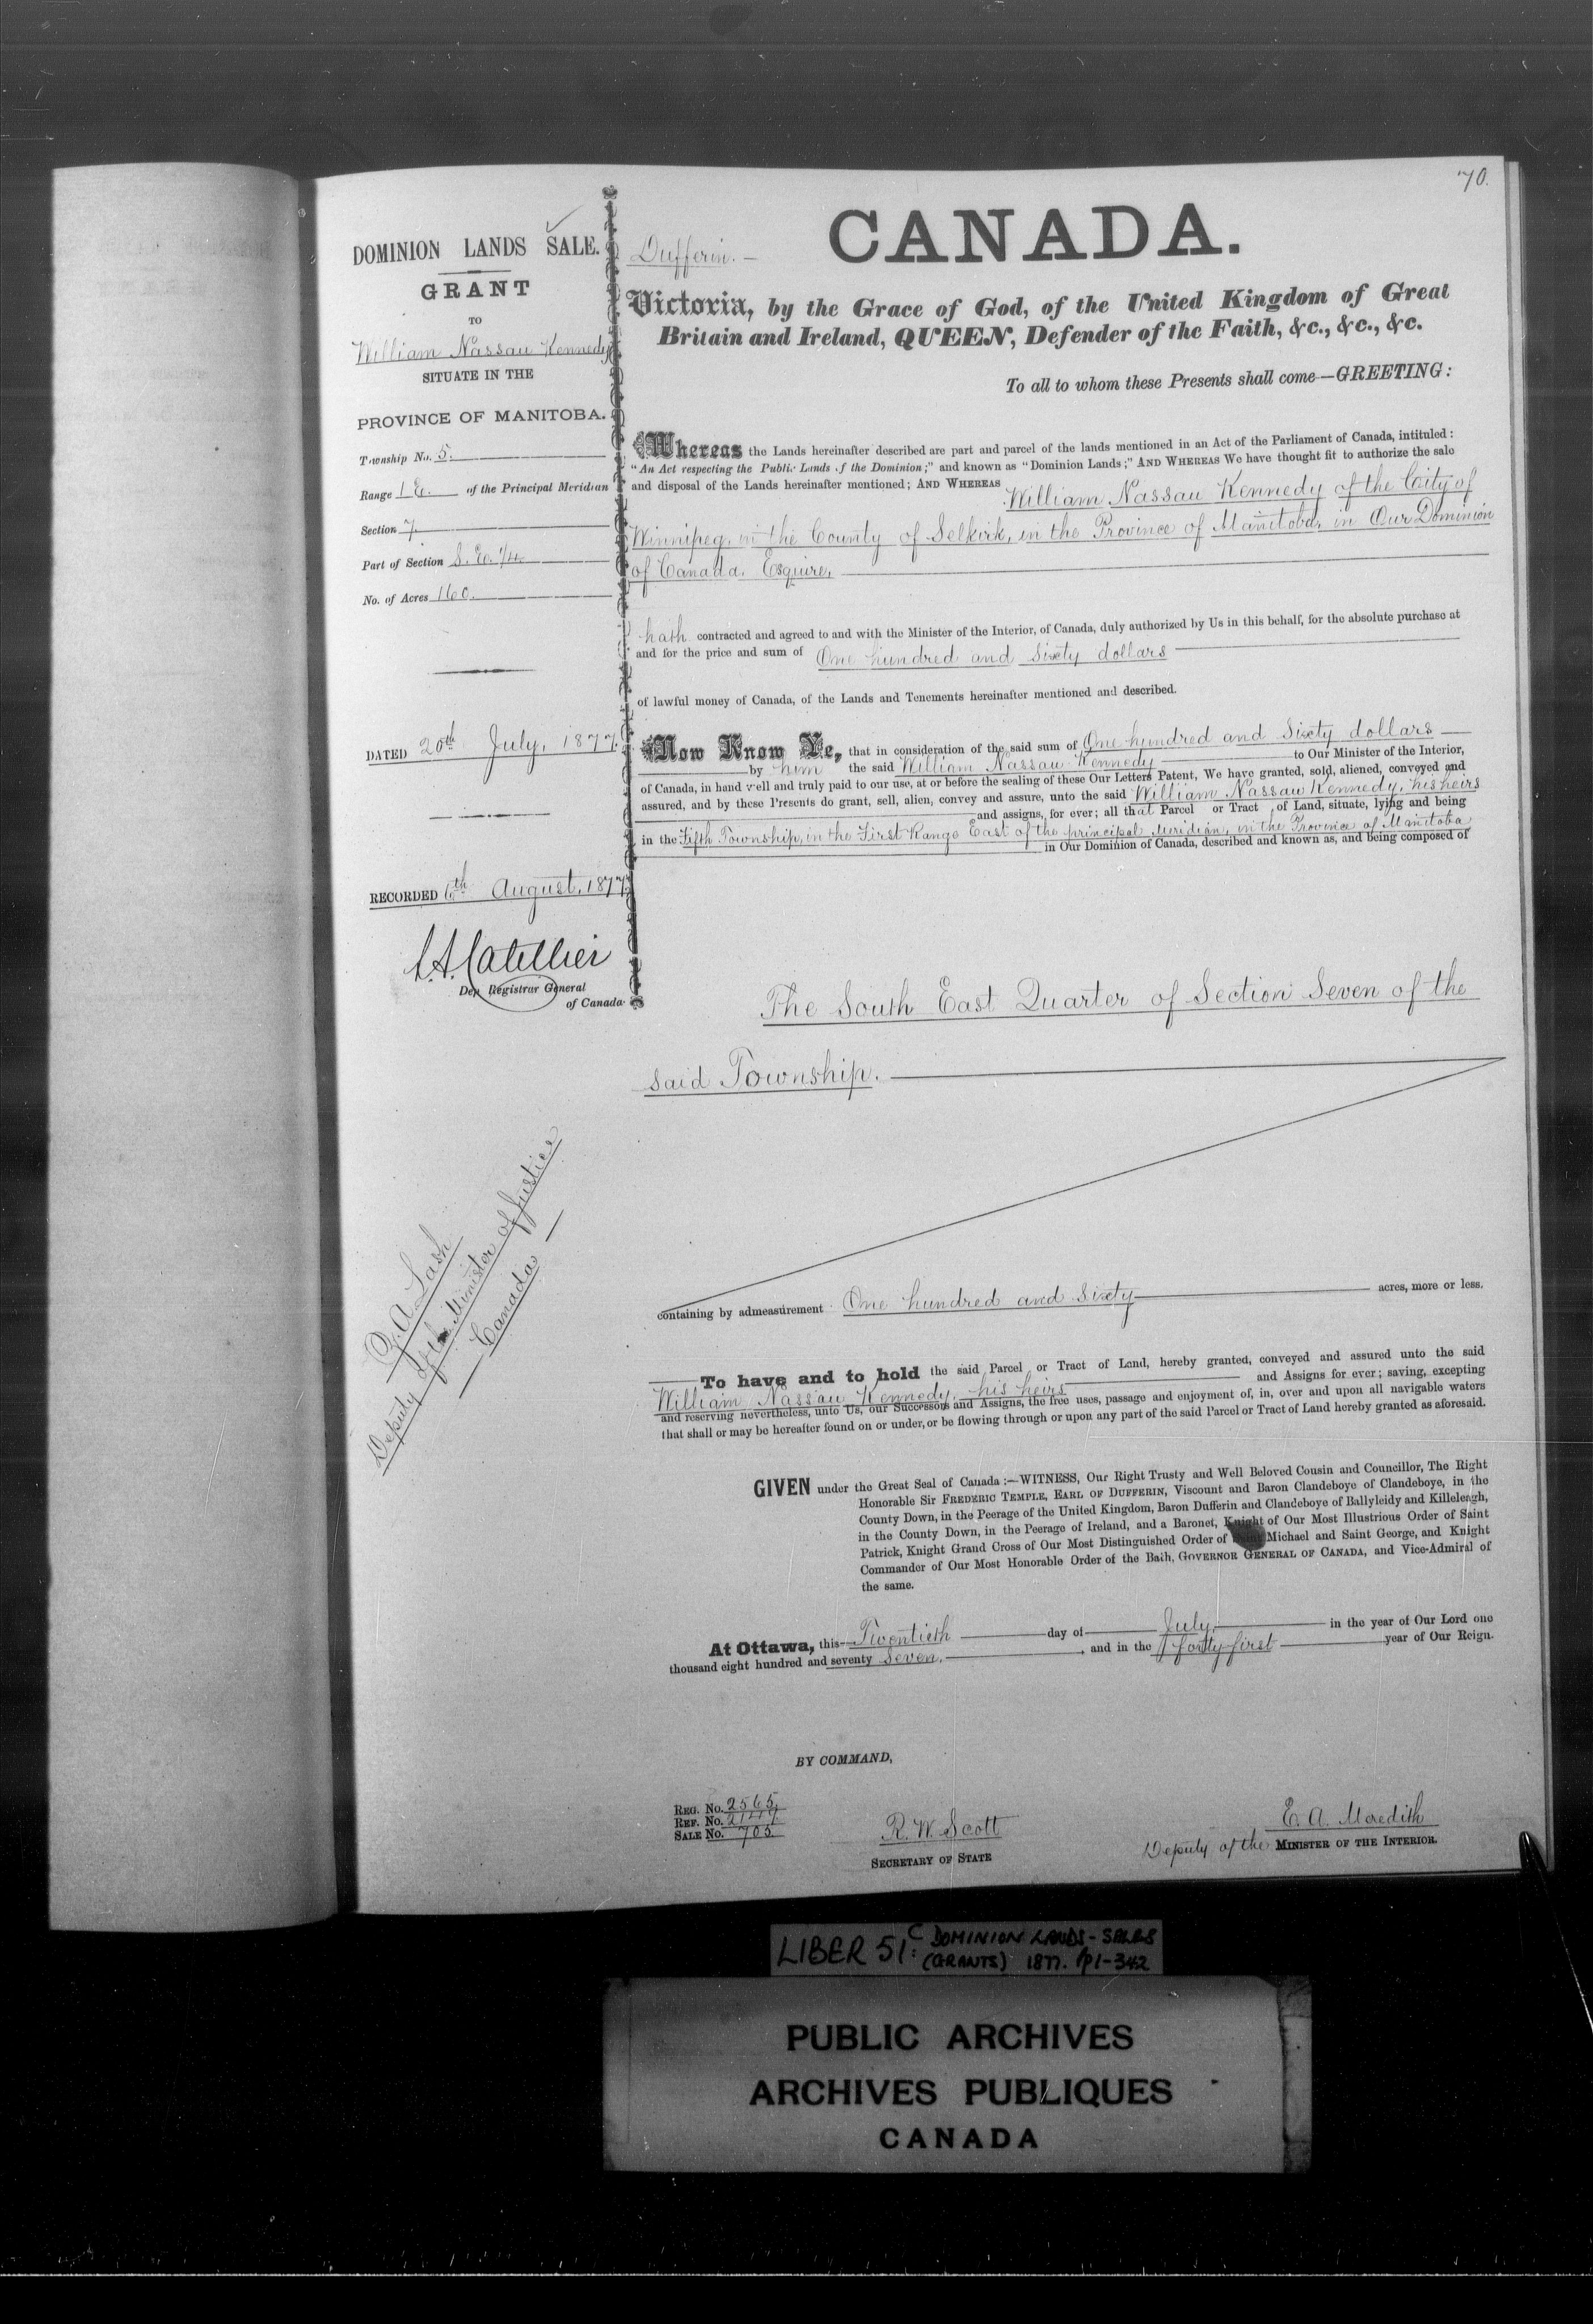 70.
DOMINION LANDS SALE.
GRANT
TO
William Nassau Kennedy
SITUATE IN THE
PROVINCE OF MANITOBA.
Township No. 5.
Range 1 E. of the Principal Meridian
Section 7
Part of Section S. E. 1/4
No. of Acres 160.
DATED 20th July, 1877.
RECORDED 6th August, 1877.
L.A. Catellier
Dep. Registrar General
of Canada.
Z. A. Lash
Deputy of the Minister of Justice
Canada
Dufferin. —
CANADA.
Victoria, by the Grace of God, of the United Kingdom of Great
Britain and Ireland, QUEEN, Defender of the Faith, &c., &c., &c.
To all to whom these Presents shall come—GREETING:
Whereas the Lands hereinafter described are part and parcel of the lands mentioned in an Act of the Parliament of Canada, intituled:
"An Act respecting the Public Lands of the Dominion;" and known as "Dominion Lands;" AND WHEREAS We have thought fit to authorize the sale
and disposal of the Lands hereinafter mentioned; AND WHEREAS William Nassau Kennedy of the City of
Winnipeg, in the County of Selkirk, in the Province of Manitoba, in Our Dominion
of Canada, Esquire,
hath contracted and agreed to and with the Minister of the Interior, of Canada, duly authorized by Us in this behalf, for the absolute purchase at
and for the price and sum of One hundred and Sixty dollars
of lawful money of Canada, of the Lands and Tenements hereinafter mentioned and described.
Now Know Ye, that in consideration of the said sum of One hundred and Sixty dollars
by him the said William Nassau Kennedy to Our Minister of the Interior,
of Canada, in hand well and truly paid to our use, at or before the sealing of these Our Letters Patent, We have granted, sold, aliened, conveyed and
assured, and by these Presents do grant, sell, alien, convey and assure, unto the said William Nassau Kennedy, his heirs
and assigns, for ever; all that Parcel or Tract of Land, situate, lying and being
in the Fifth Township, in the First Range East of the principal Meridian, in the Province of Manitoba
in Our Dominion of Canada, described and known as, and being composed of
The South East Quarter of Section Seven of the
said Township.
containing by admeasurement One hundred and Sixty acres, more or less.
To have and to hold the said Parcel or Tract of Land, hereby granted, conveyed and assured unto the said
William Nassau Kennedy, his heirs and Assigns for ever; saving, excepting
and reserving nevertheless, unto Us, our Successors and Assigns, the free uses, passage and enjoyment of, in, over and upon all navigable waters
that shall or may be hereafter found on or under, or be flowing through or upon any part of the said Parcel or Tract of Land hereby granted as aforesaid.
GIVEN under the Great Seal of Canada:—WITNESS, Our Right Trusty and Well Beloved Cousin and Councillor, The Right
Honorable Sir FREDERIC TEMPLE, EARL OF DUFFERIN, Viscount and Baron Clandeboye of Clandeboye, in the
County Down, in the Peerage of the United Kingdom, Baron Dufferin and Clandeboye of Ballyleidy and Killeleagh,
in the County Down, in the Peerage of Ireland, and a Baronet, Knight of Our Most Illustrious Order of Saint
Patrick, Knight Grand Cross of Our Most Distinguished Order of Saint Michael and Saint George, and Knight
Commander of Our Most Honorable Order of the Bath, GOVERNOR GENERAL OF CANADA, and Vice-Admiral of
the same.
At Ottawa, this Twentieth day of July, in the year of Our Lord one
thousand eight hundred and seventy Seven, and in the forty first year of Our Reign.
BY COMMAND,
REG. No. 2565.
REF. No. 2147.
SALE No. 705.
R. W. Scott
SECRETARY OF STATE
E. A. Meredith
Deputy of the MINISTER OF THE INTERIOR.
LIBER 51: C DOMINION LANDS - SALES
(GRANTS) 1877. pp1-342
PUBLIC ARCHIVES
ARCHIVES PUBLIQUES
CANADA